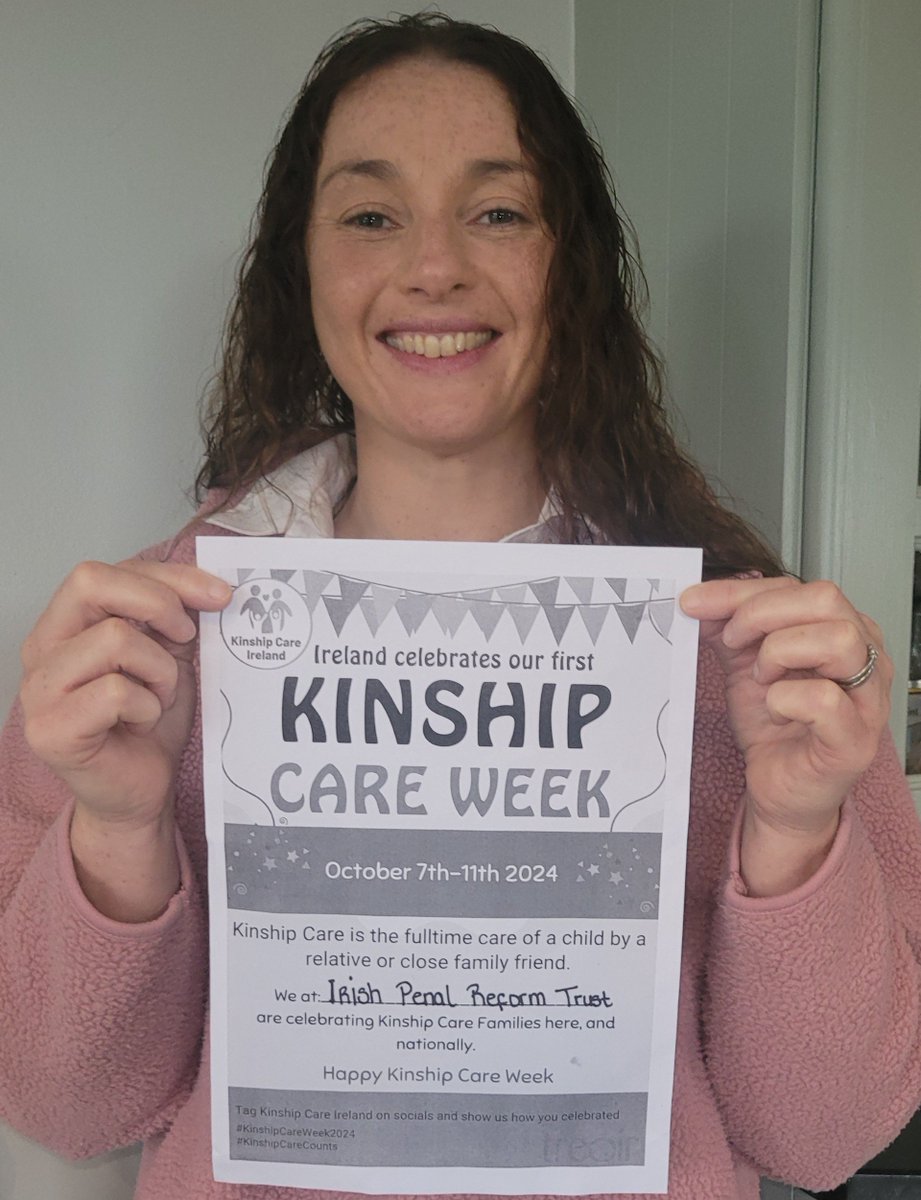 Kinship Care
Ireland
Ireland celebrates our first
KINSHIP
CARE WEEK
October 7th-11th 2024
Kinship Care is the fulltime care of a child by a
relative or close family friend.
We at: Irish Penal Reform Trust
are celebrating Kinship Care Families here, and
nationally.
Happy Kinship Care Week
Tag Kinship Care Ireland on socials and show us how you celebrated
#KinshipCareWeek2024
#KinshipCareCounts
treoir